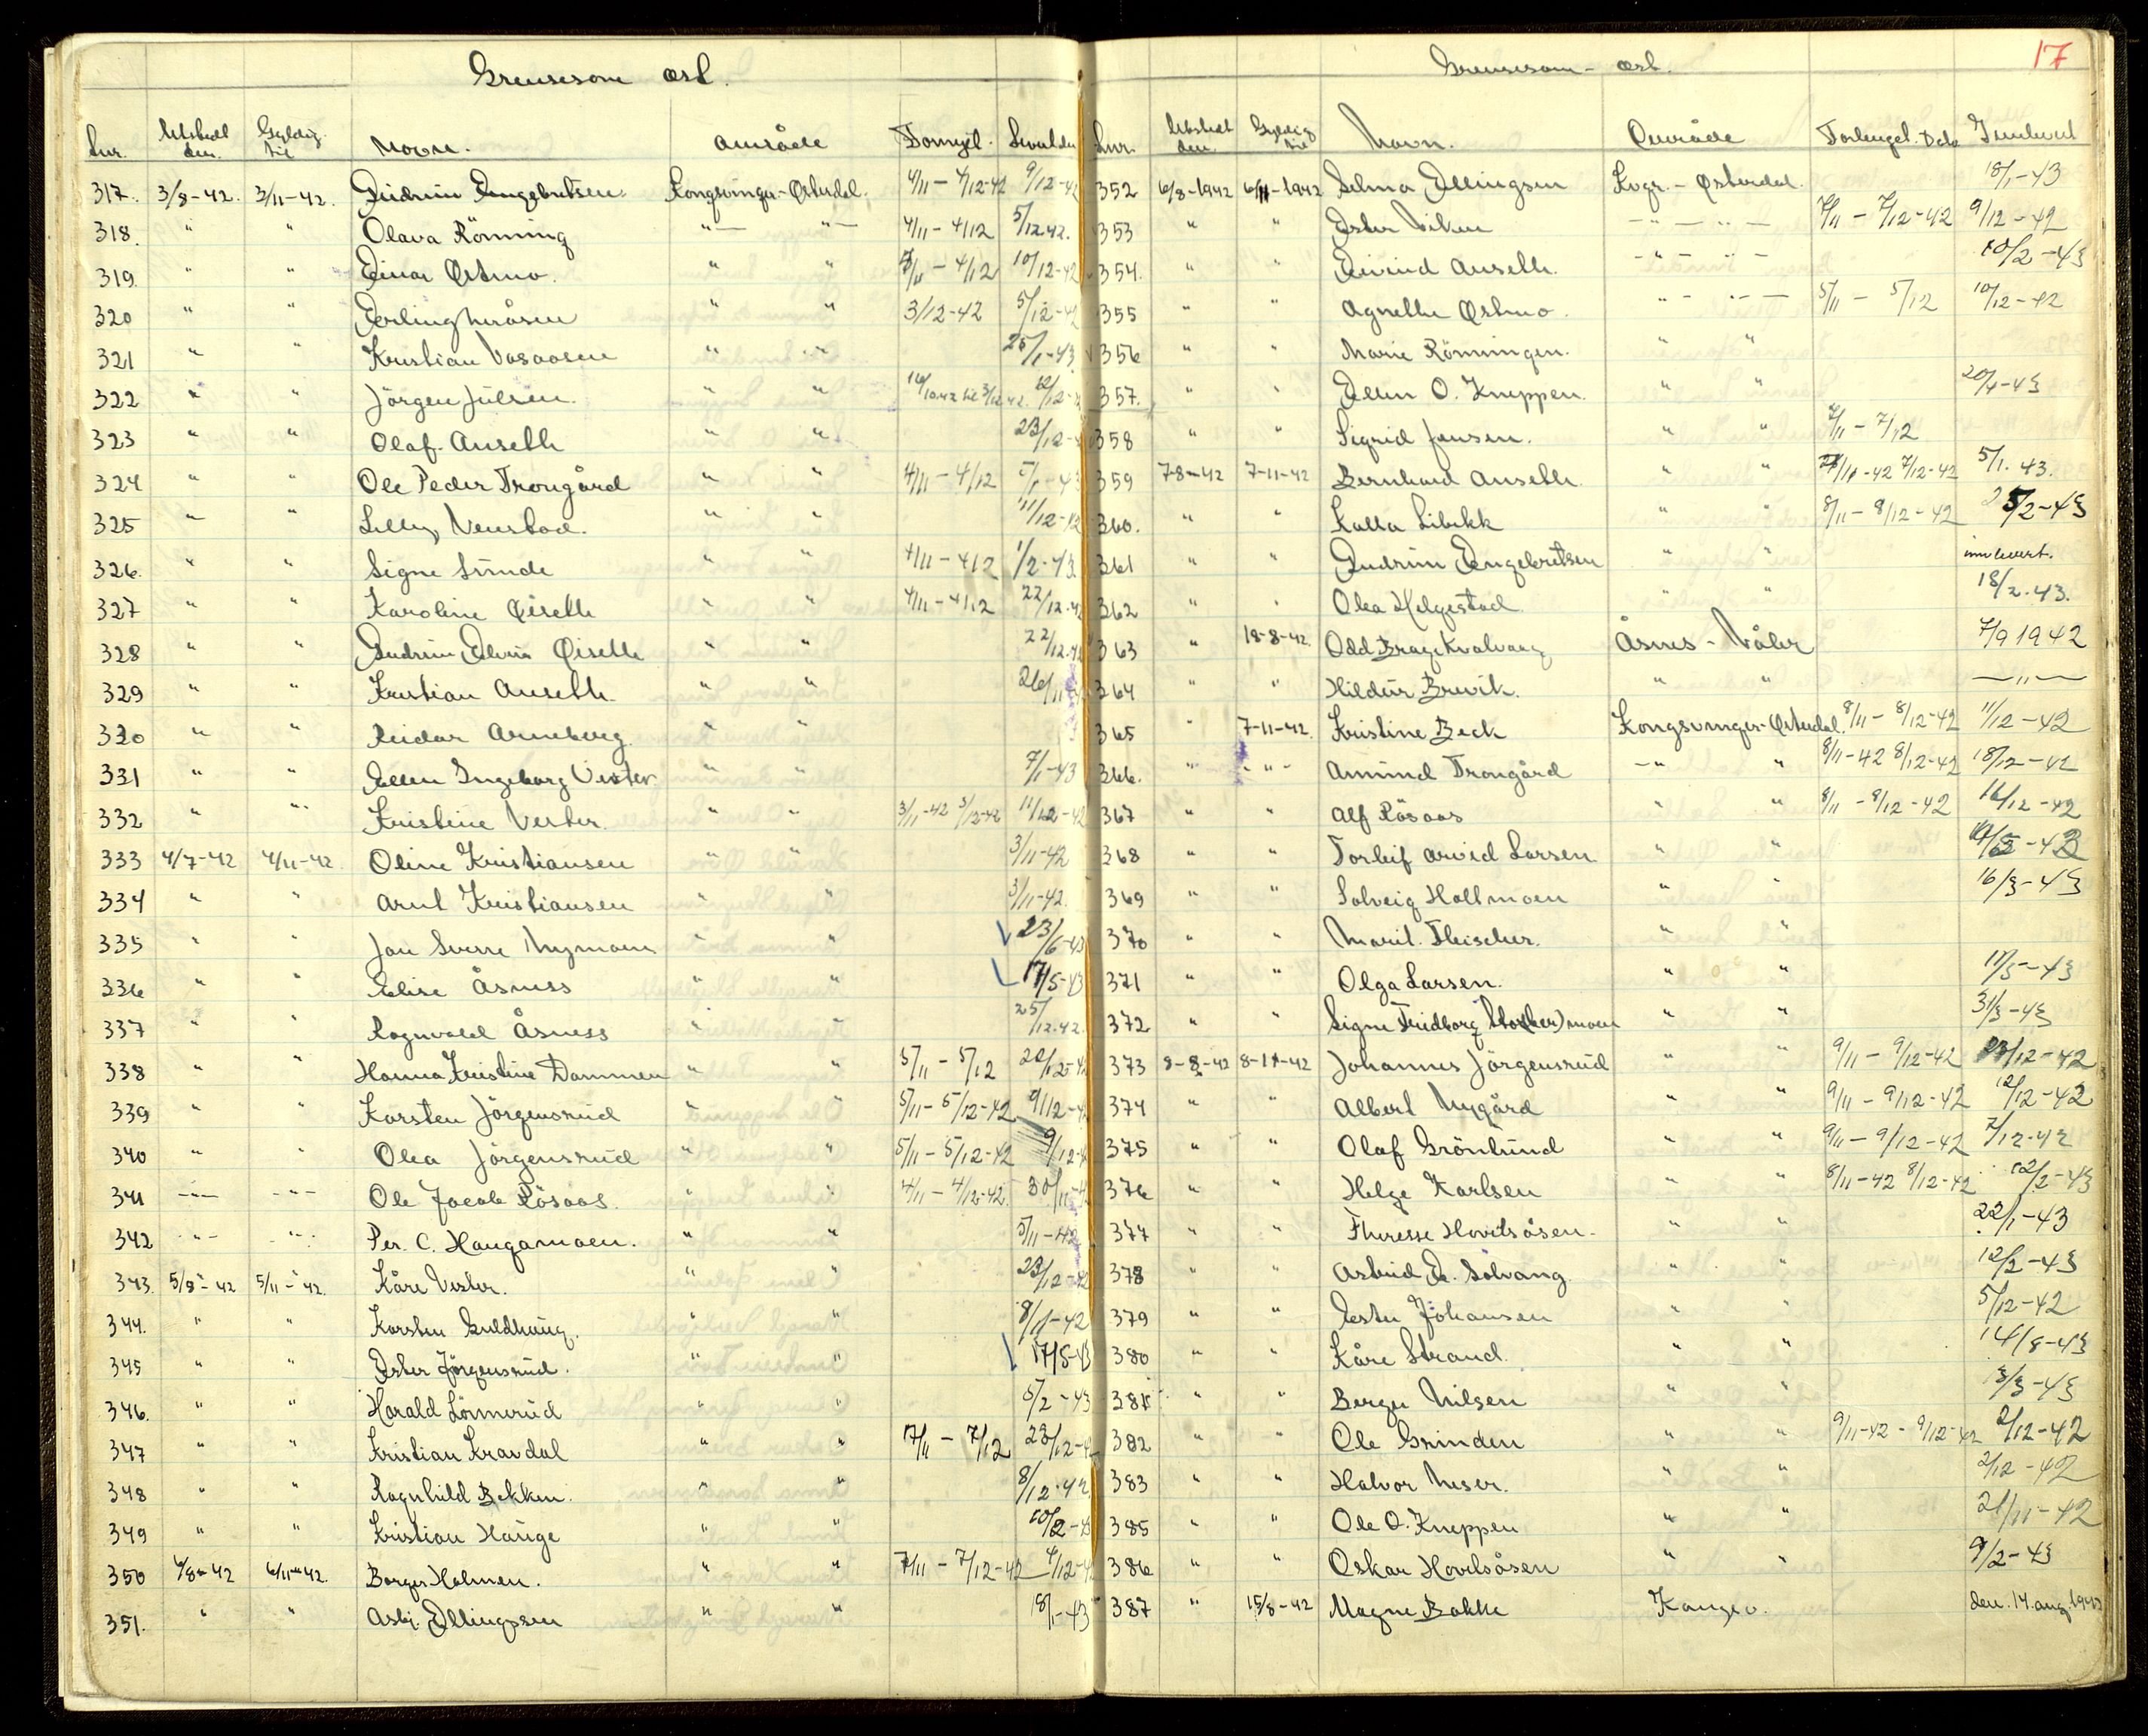 Grensesone øst.
Lnr. Utstedt den. Gyldig til Navn. Område Fornyet.
317. 3/8-42. 3/11-42. Gudrun Engebretsen Kongsvinger-Østerdal. 4/11 - 4/12-42 9/12-42
318. " " Olava Rönning "— "— 4/11 - 4/12 5/12.42.
319. " " Einar Østmo. " " 4/12 10/12-42
320 " " " " 3/12-42 5/12-42
321 " " Kristian Vasaasen " " 25/1-43
322 " " Jörgen Julsen. " "
323 " " Olaf Anseth " " 23/12
324 " " Ole Peder Trongård " " 4/11 - 4/12 5/1-43
325 " " Lilly Venstad. " " 11/12-42
326. " " Signe Lunde " " 4/11 - 4/12 1/2-43
327 " " Karoline Øiseth " " 4/11 - 4/12 22/12-42
328 " " Gudrun Øiseth 22/12-42
329 " " Kristian Anseth " " 26/11
330 " " Reidar Arneberg " "
331 " " Ellen Ingeborg Vester " " 7/1-43
332 " " Kristine Vester. " " 3/11-42 3/12-42 11/12-42
333 4/7-42 4/11-42 Oline Kristiansen " " 3/11-42
334 " " Arnt Kristiansen " " 3/11-42.
335 " " Jan Sverre Nymoen " " 23/6-43
336 " " Elise Åsness " " 17/5-43
337 " " Ragnvald Åsness " " 25/12.42.
338 " " Hanna Kristine Dammen " " 5/11 - 5/12
339 " " Karsten Jörgensrud " " 5/11 - 5/12-42 9/12-42
340 " " Olea Jörgensrud " " 5/11 - 5/12-42 9/12-42
341 -"- -"- Ole Jacob Råsaas. " " 4/11 - 4/12-42 30/11
342 -"- -"- Per. C. Haugamoen. " " 5/11-42
343. 5/8-42 5/11-42. Kåre Vester. " " 23/12-42
344. " " Karsten Guldhaug. " " 8/11-42
345 " " Ester Jörgensrud. " " 17/5-43
346. " " Harald Lönnerud " " 5/2-43
347 " " Kristian Kravdal " " 17/11 - 7/12 23/12-42
348 " " Ragnhild Bekken. " " 8/12-42
349 " " Kristian Hauge " " 10/2-43
350 6/8-42 6/11-42. Borger Holmen. " " 7/11 - 7/12-42 4/12-42
351. " " Ellingsen " " 18/1-43
Grensesone - øst. 17
Lnr. Utstedt den. Gyldig til Navn. Område Forlenget. Dato Innlevert
352 6/8-1942 6/11-1942 Selma Ellingsen Kvgr. - Østerdal. 18/1-43
353 " " Ester Viken -"- -"- 7/11 - 7/12-42 9/12-42
354. " " Eivind Anseth. -"- -"- 10/2-43
355 " " Agnethe Østmo. " - " - 5/11 - 5/12 10/12-42
356 " " Marie Rönningen. " "
357. " " Ellen O. Kneppen. " " 20/4-43
358 " " Sigrid Jensen. " " 7/11 - 7/12
359 7-8-42 7-11-42 Bernhard Anseth. " " 7/12-42 5/1. 43.
360. " " Kalla Libekk " " 8/11 - 8/12-42 25/2-43
361 " " Gudrun Engebretsen " " innlevert.
362 " " Olea Helgestad " " 18/2.43.
363 " 18-8-42. Odd Brage Kvalvang Åsnes - Våler 7/9 1942
364 " " Hildur Brevik. " " —"—
365 " 7-11-42. Kristine Beck Kongsvinger-Østerdal. 8/11 - 8/12-42 11/12-42
366. " -"- Amund Trongård -" " 8/11-42 8/12-42 18/12-42
367 " " Alf Råsaas " " 8/11 - 8/12-42 16/12-42
368 " " Torleif Arvid Larsen " "
369 " " Solveig Holtmoen " " 16/3-43
370 " " Marit. Fleischer. " "
371 " " Olga Larsen. " " 11/3-43
372 " " Signe Fridborg " " 31/3-43
373 8-8-42 8-11-42 Johannes Jörgensrud " " 9/11 - 9/12-42
374 " " Albert Nygård " " 9/11 - 9/12-42 12/12-42
375 " " Olaf Grönlund " " 9/11 - 9/12-42 7/12-42
376 " " Helge Karlsen " " 8/11-42 8/12-42 12/2-43
377 " " Therese Hovelsåsen. " " 22/1-43
378 " " Astrid E. Solvang. " " 12/2-43
379 " " Ester Johansen " " 5/12-42
380 " " Kåre Strand. " " 14/8-43
381 " " Berger Nilsen " " 3/3-43
382 " " Ole Grinden " " 9/11-42 - 9/12-42 2/12-42
383 " " Halvor Meser. " " 2/12-42
385 " " Ole O. Kneppen " " 21/11-42
386 " " Oskar Hovelsåsen " " 9/2-43
387 " 15/8-42 Magne Bakke Kongsv. den. 14. aug 1942